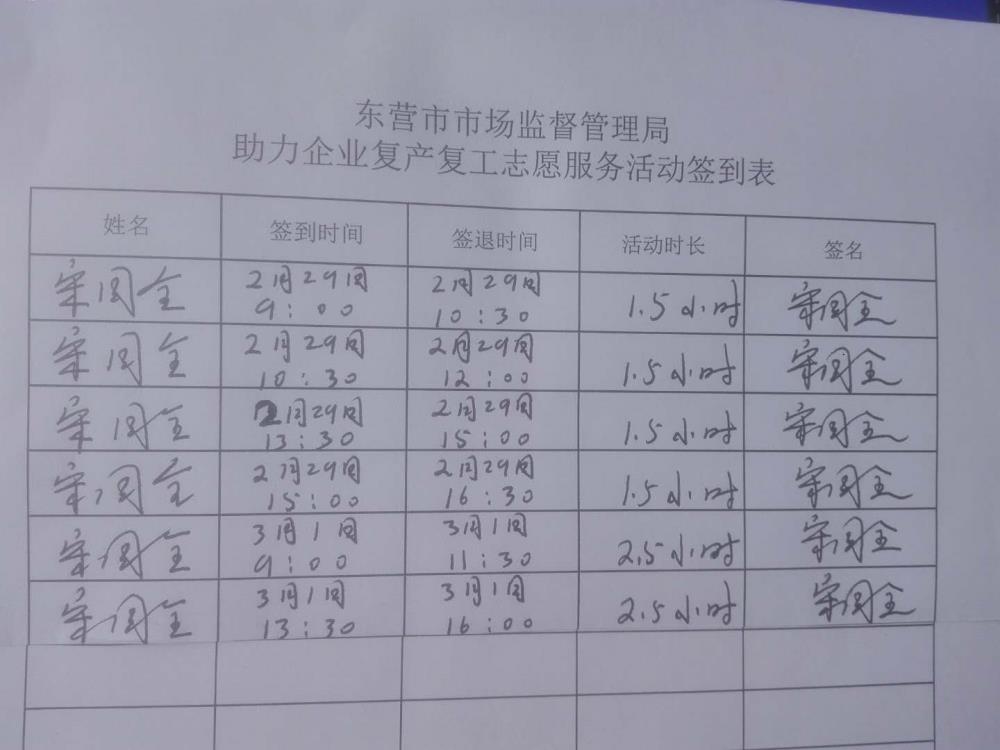 东营市市场监督管理局
助力企业复产复工志愿服务活动签到表
姓名
签到时间
签退时间
活动时长
签名
宋国全
2月29日
9:00
2月29日
10:30
1.5小时
宋国全
宋国全
2月29日
10:30
2月29日
12:00
1.5小时
宋国全
宋国全
2月29日
13:30
2月29日
15:00
1.5小时
宋国全
宋国全
2月29日
15:00
2月29日
16:30
1.5小时
宋国全
宋国全
3月1日
9:00
3月1日
11:30
2.5小时
宋国全
宋国全
3月1日
13:30
3月1日
16:00
2.5小时
宋国全